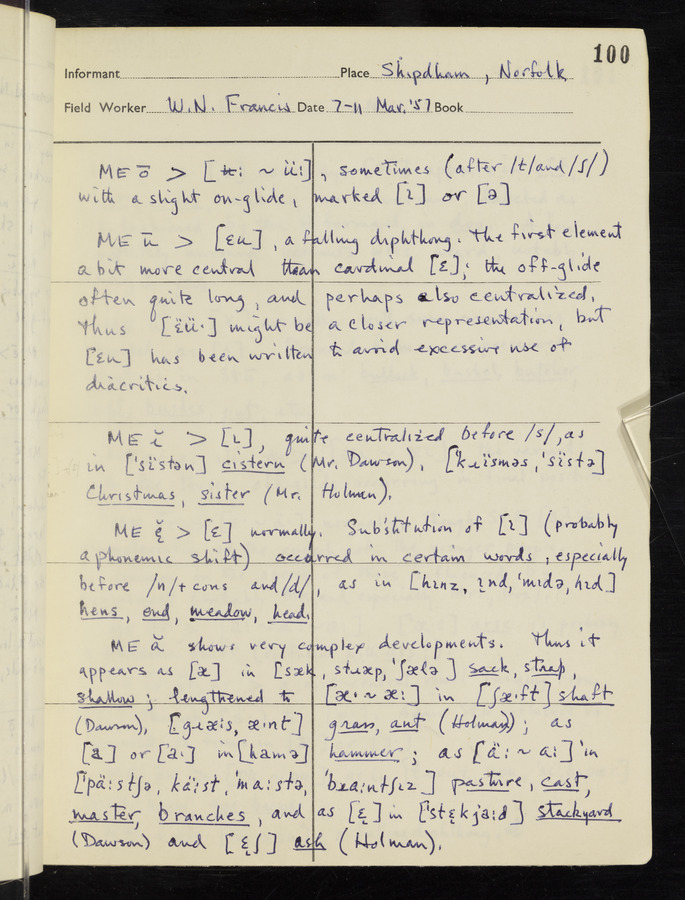 100
Informant Place Shipdham, Norfolk
Field Worker W.N. Francis Date 7-11 Mar. '57 Book
ME ō > [ʉ: ~ üː], sometimes (after /t/ and /ʃ/)
with a slight on-glide, marked [ɪ] or [ə]
ME ū > [ɛu], a falling diphthong. The first element
a bit more central than cardinal [ɛ]; the off-glide
often quite long, and perhaps also centralized.
Thus [ɛ̈ü·] might be a closer representation, but
[ɛu] has been written to avoid excessive use of
diacritics.
ME ĭ > [ɩ], quite centralized before /s/, as
in ['sɩ̈stən] cistern (Mr. Dawson), ['kɹɩ̈sməs, 'sɩ̈stə]
Christmas, sister (Mr. Holman).
ME ę̆ > [ɛ] normally. Substitution of [ɩ] (probably
a phonemic shift) occurred in certain words, especially
before /n/ + cons and /d/, as in [hɩnz, ɩnd, 'mɩdə, hɩd]
hens, end, meadow, head.
ME ă shows very complex developments. Thus it
appears as [æ] in [sæk, stɹæp, 'ʃælə] sack, strap,
shallow; lengthened to [æ· ~ æ:] in [ʃæ·ft] shaft
(Dawson), [gɹæ:s, æ·nt] grass, ant (Holman); as
[a] or [a·] in [hamə] hammer; as [ä: ~ a:] in
['pä:stʃə, kä:st, 'ma:stə, 'bɹa:ntʃɩz] pasture, cast,
master, branches, and as [ɛ̨] in ['stɛ̨kja:d] stackyard
(Dawson) and [ɛ̨ʃ] ash (Holman).